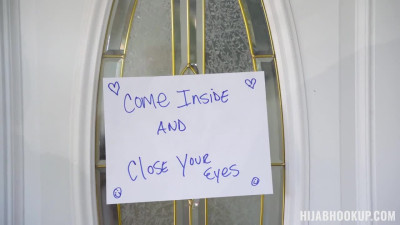 Come Inside
AND
Close Your
Eyes
HIJABHOOKUP.COM